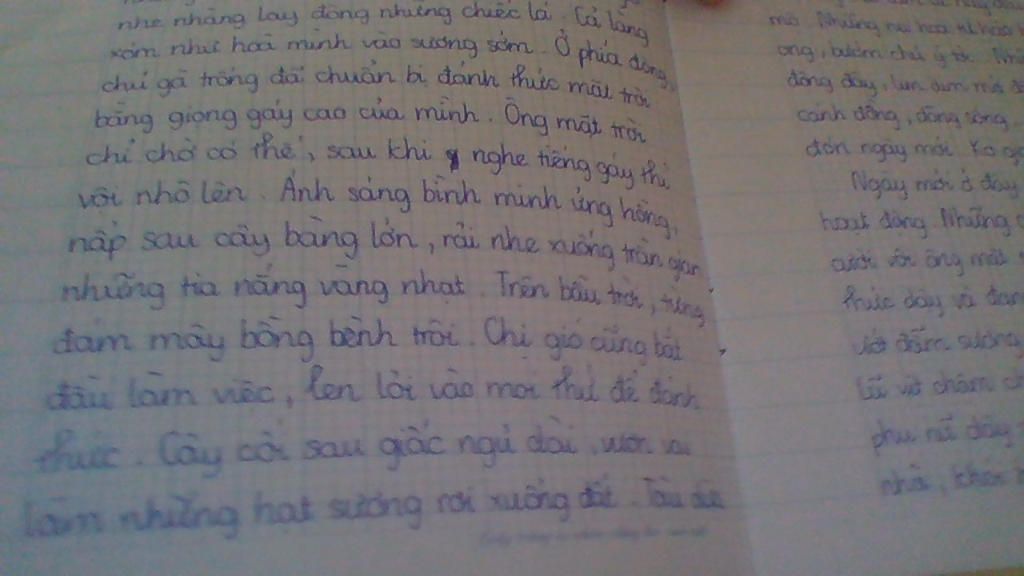 nhẹ nhàng lay động những chiếc lá. Cả làng
xóm như hoà mình vào sương sớm. Ở phía đông,
chú gà trống đã chuẩn bị đánh thức mặt trời
bằng giọng gáy cao của mình. Ông mặt trời
chỉ chờ có thế, sau khi nghe tiếng gáy thì
vội nhô lên. Ánh sáng bình minh ửng hồng,
nấp sau cây bàng lớn, rải nhẹ xuống trần gian
những tia nắng vàng nhạt. Trên bầu trời, từng
đám mây bồng bềnh trôi. Chị gió cũng bắt
đầu làm việc, len lỏi vào mọi thứ để đánh
thức. Cây cối sau giấc ngủ dài, vươn vai
làm những hạt sương rơi xuống đất. Tàu dừa
mờ. Những nụ hoa
ong, bướm chú ý tới.
đông đây,
cánh đồng, dòng sông,
đón ngày mới.
Ngày mới ở đây
hoạt động. Những
cười với ông mặt
thức dậy và
ướt đẫm sương
phụ nữ dậy
nhà, khói